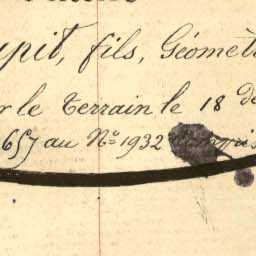 upit, fils, Géomèt
r le Terrain le 18 de
657 au N° 1932